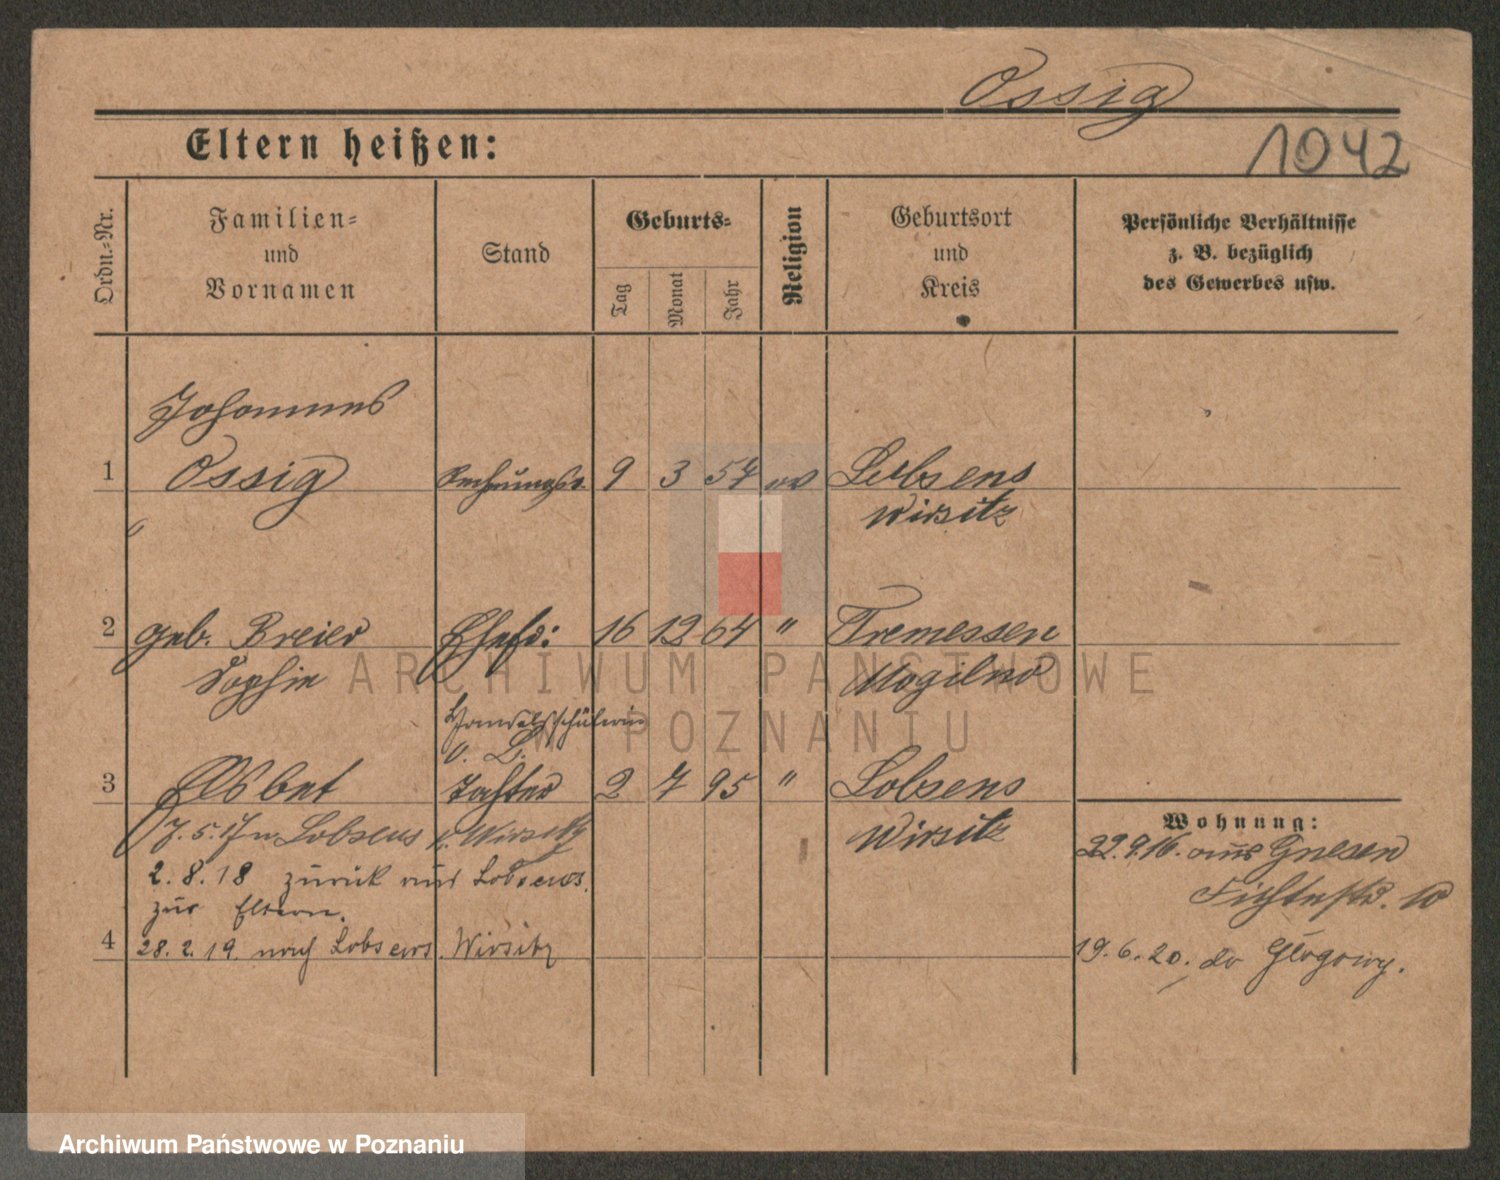 Ossig
1042
Eltern heißen:
Ordn.-Nr.
Familien-
und
Vornamen
Stand
Geburts-
Tag
Monat
Jahr
Religion
Geburtsort
und
Kreis
Persönliche Verhältnisse
z. B. bezüglich
des Gewerbes usw.
Johannes
1 Ossig Rechnungsr. 9 3 54 ev Lobsens
Wirsitz
2 geb. Breier Ehefr: 16 12 64 " Tremessen
Sophie Mogilno
Handelsschülerin
3 Elsbet Tochter 2 7 95 " Lobsens
Wirsitz
7. 5. 17 n. Lobsens k. Wirsitz
2. 8. 18 zurück aus Lobsens.
zur Eltern.
4 28. 2. 19. nach Lobsens. Wirsitz
Wohnung:
22. 9. 16. aus Gnesen
Fichtestr. 10
19. 6. 20. do Głogowy.
ARCHIWUM PAŃSTWOWE
W POZNANIU
Archiwum Państwowe w Poznaniu